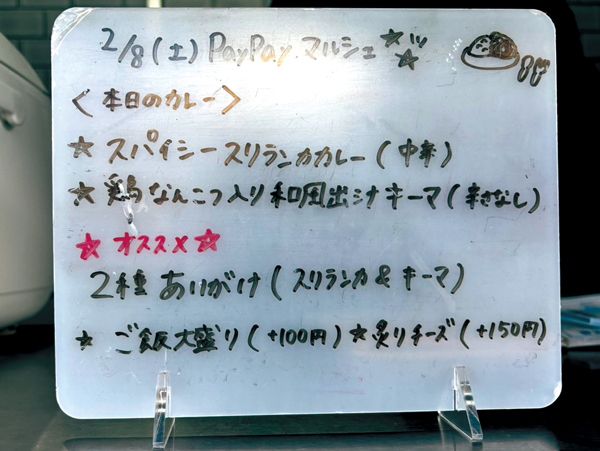 2/8(土) PayPay マルシェ
<本日のカレー>
★ スパイシースリランカカレー(中辛)
★ 鶏なんこつ入り和風出汁キーマ(辛さなし)
☆ オススメ ☆
2種あいがけ(スリランカ&キーマ)
★ ご飯大盛り(+100円) ★炙りチーズ(+150円)